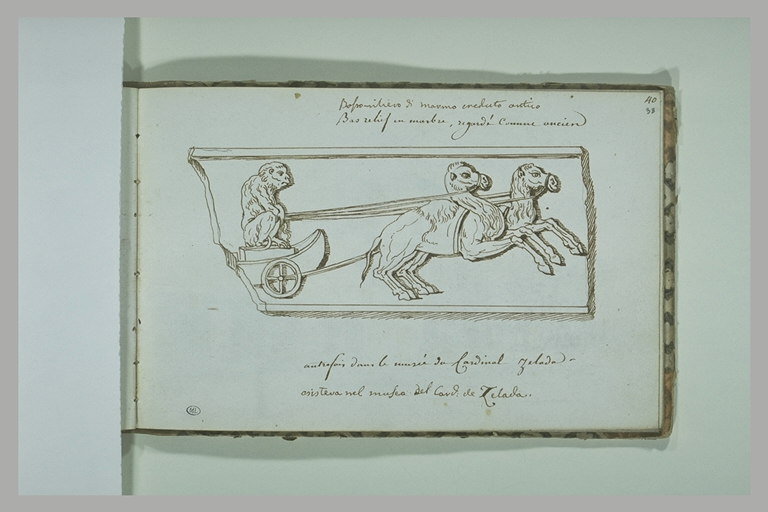 40
38
Bassorilievo di marmo creduto antico
Bas relief en marbre, regardé Comme ancien
autrefois dans le musée du Cardinal Zelada.
esisteva nel museo del Card. de Zelada.